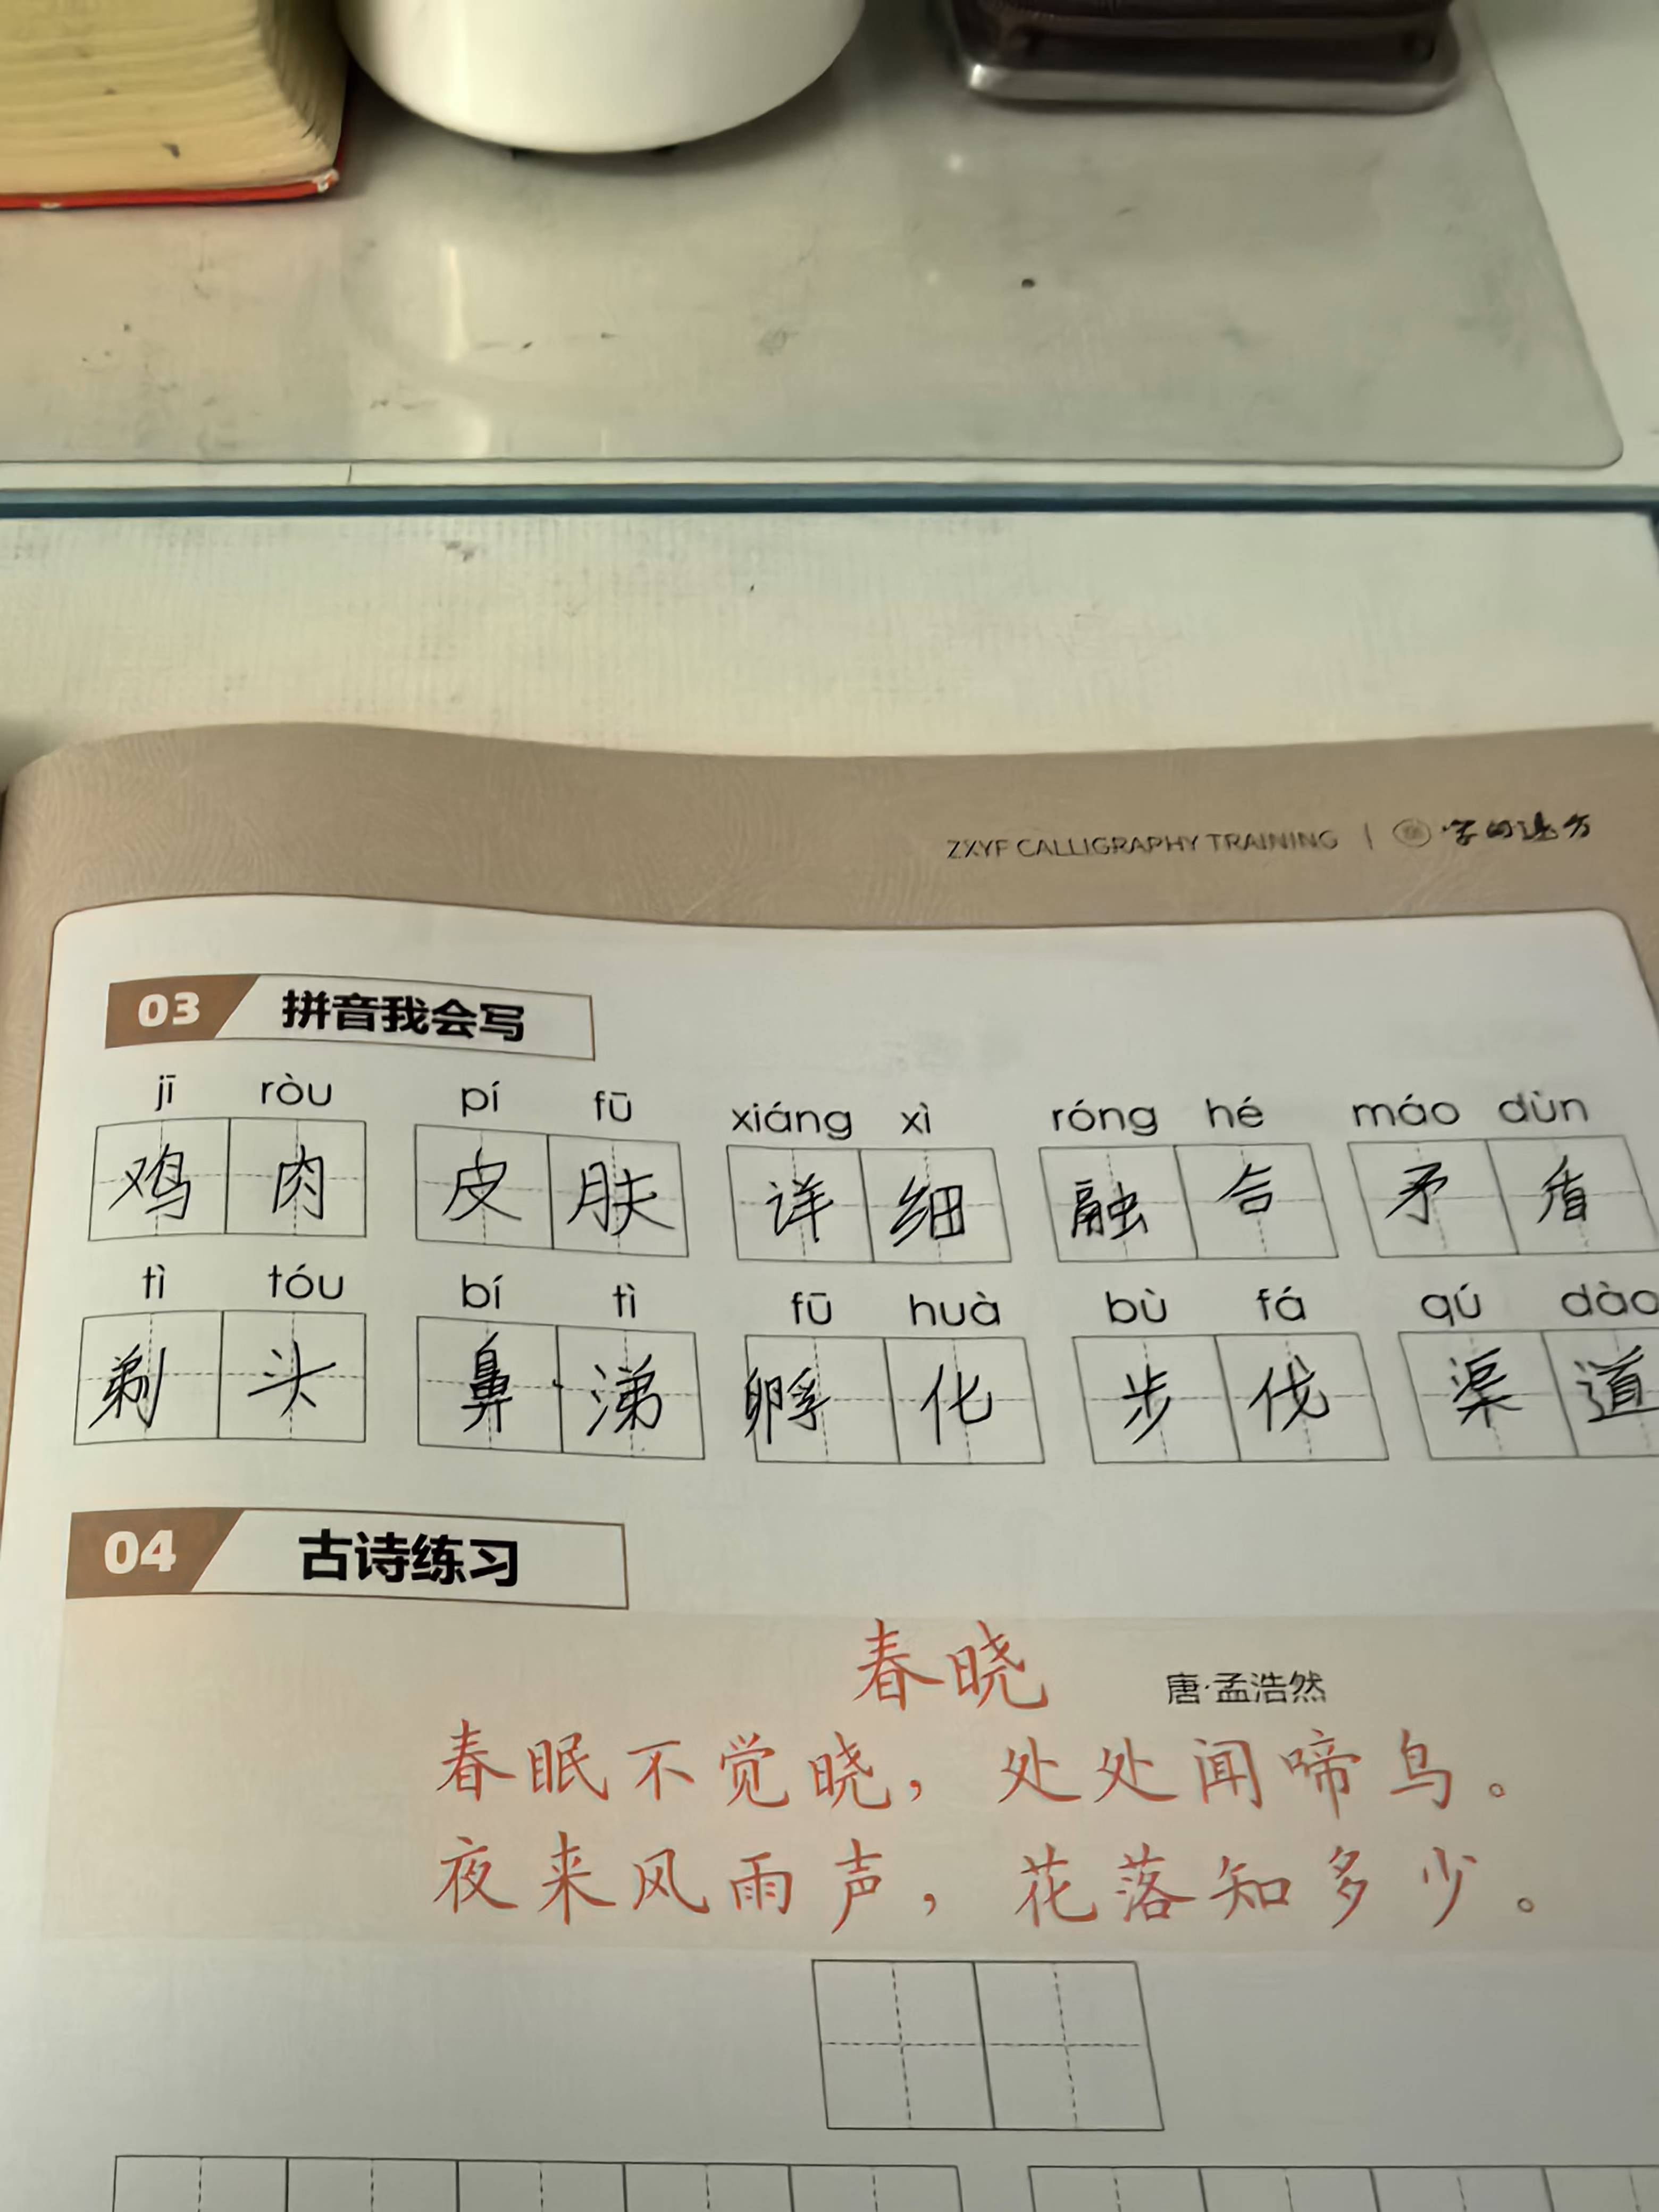 ZXYF CALLIGRAPHY TRAINING | 字的远方
03 拼音我会写
jī ròu pí fū xiáng xì róng hé máo dùn
鸡肉 皮肤 详细 融合 矛盾
tì tóu bí tì fū huà bù fá qú dào
剃头 鼻涕 孵化 步伐 渠道
04 古诗练习
春晓 唐·孟浩然
春眠不觉晓，处处闻啼鸟。
夜来风雨声，花落知多少。